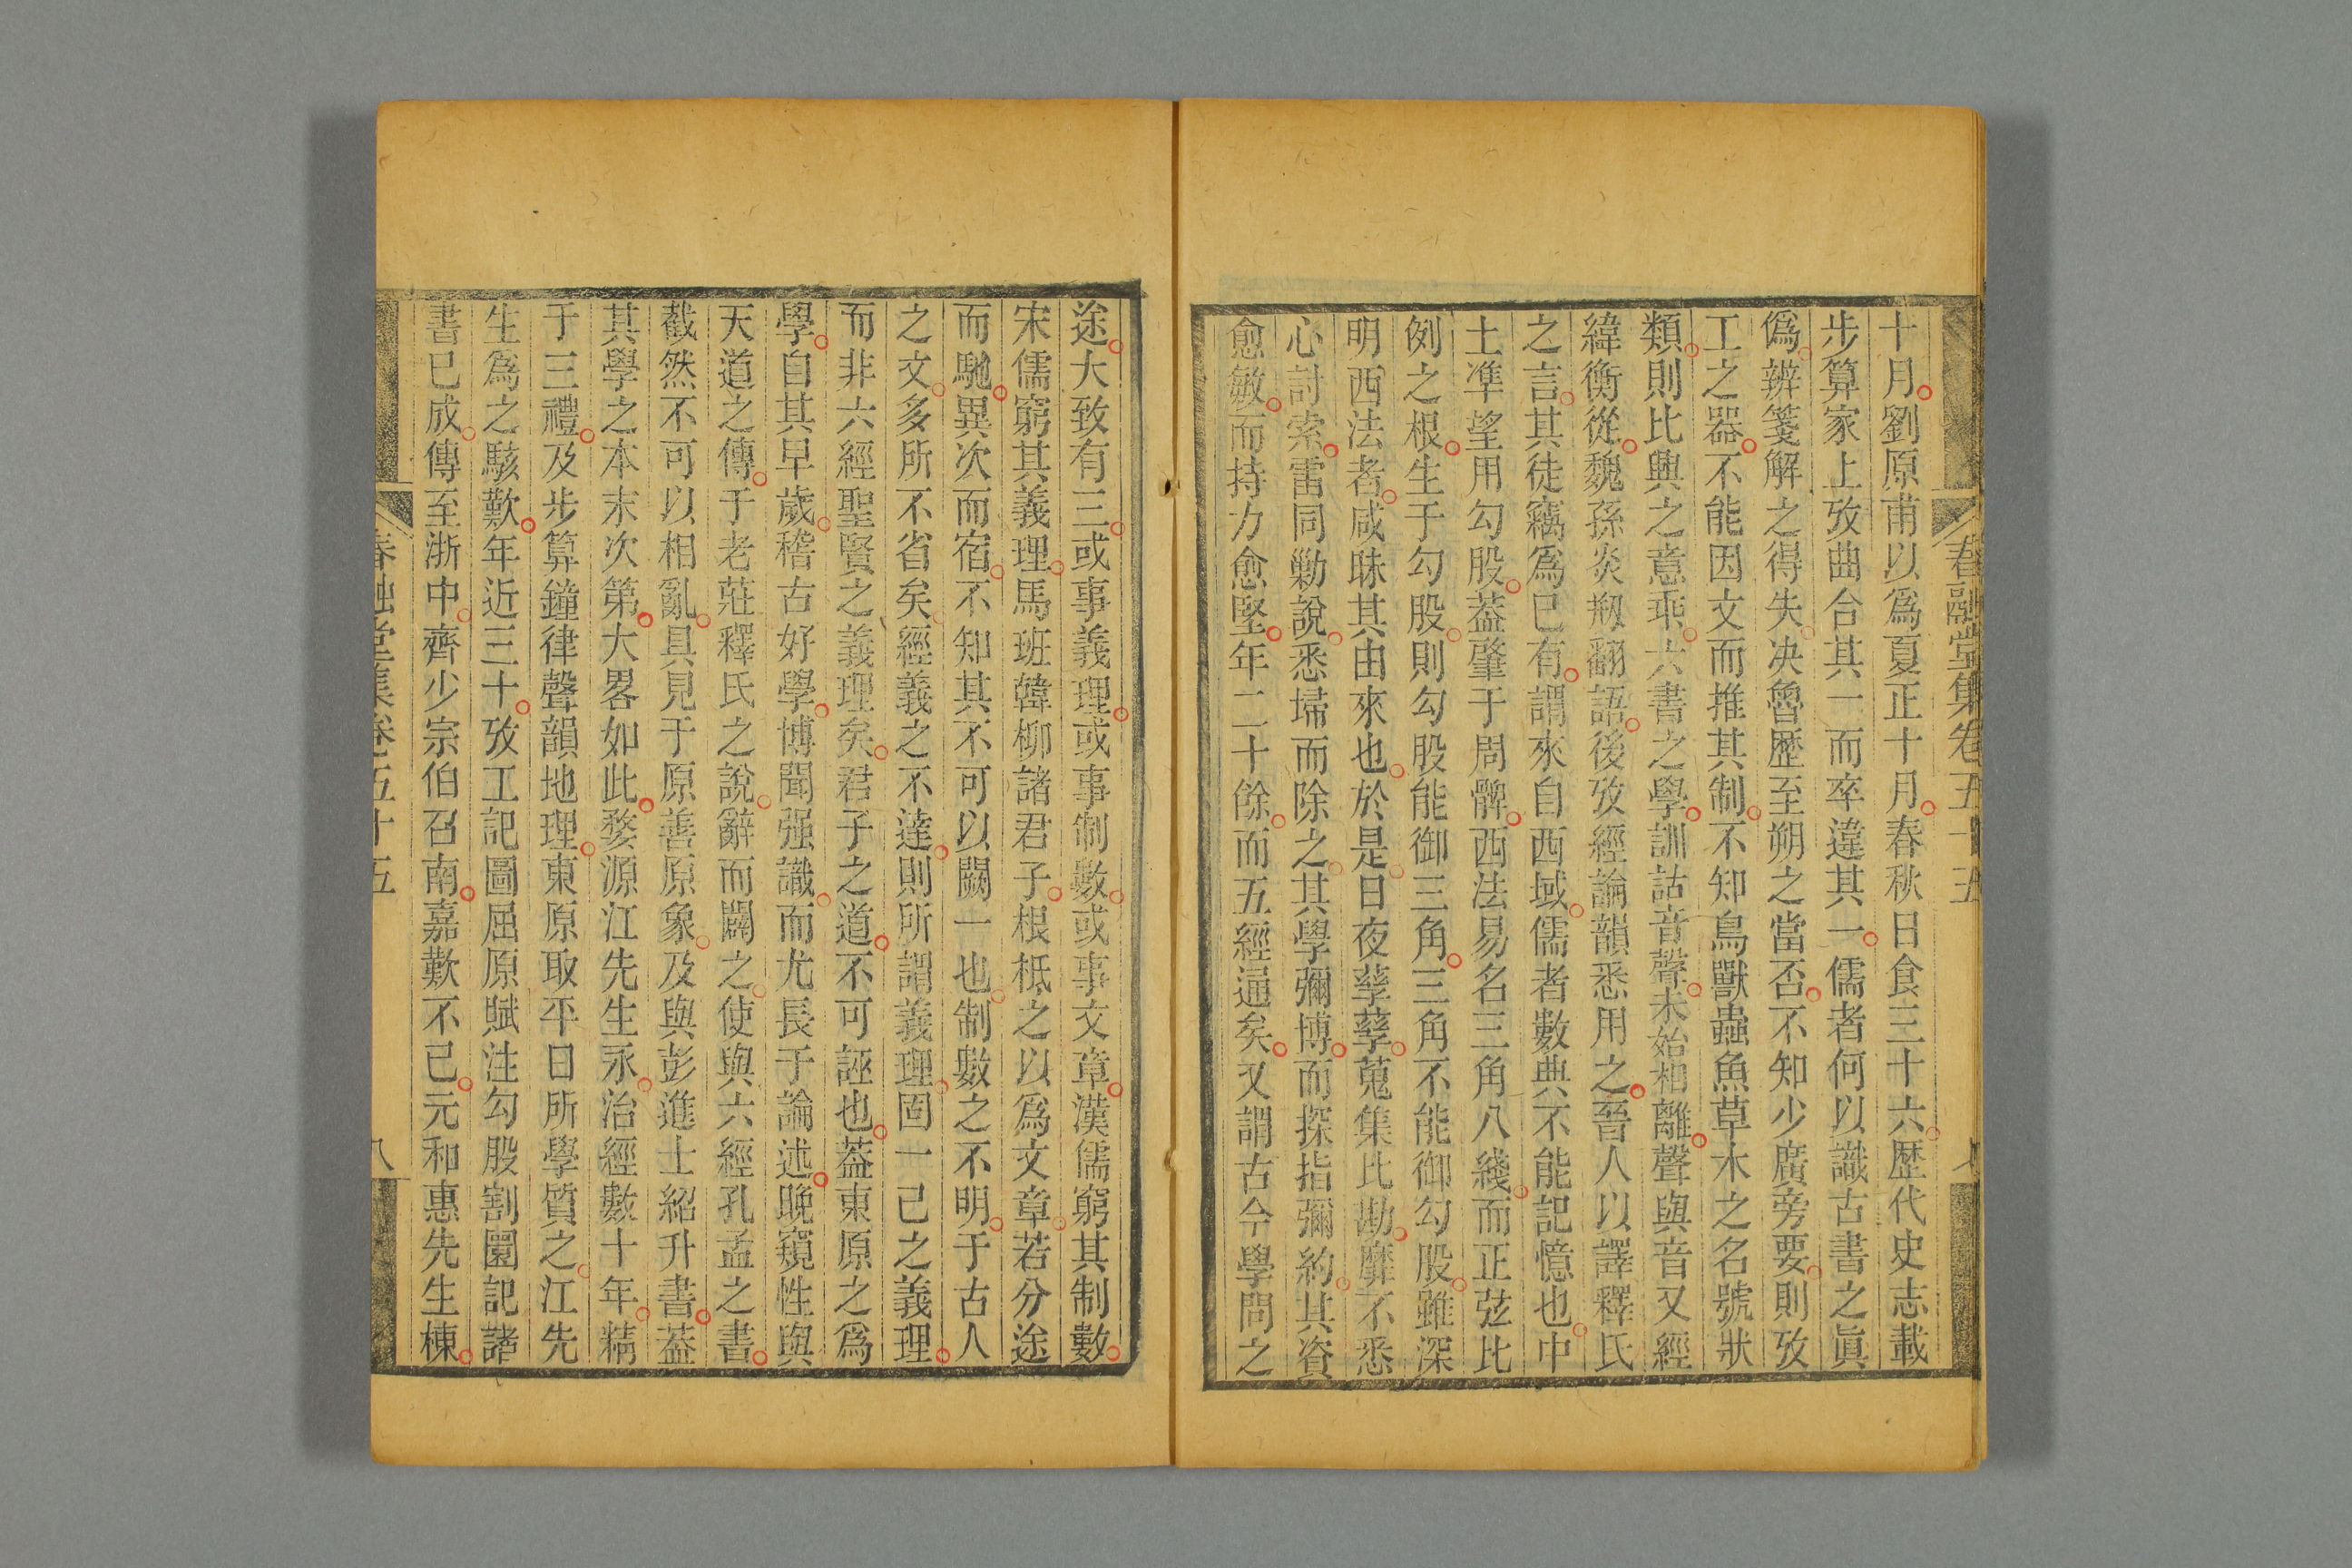 春融堂集卷五十五
十月劉原甫以爲夏正十月春秋日食三十六歷代史志載
步算家上攷曲合其一而卒違其一儒者何以識古書之眞
僞辨箋解之得失决魯歷至朔之當否不知少廣旁要則攷
工之器不能因文而推其制不知鳥獸蟲魚草木之名號狀
類則比興之意乖六書之學訓詁音聲未始相離聲與音又經
緯衡從魏孫炎剏翻語後攷經論韻悉用之晉人以譯釋氏
之言其徒竊爲已有謂來自西域儒者數典不能記憶也中
土準望用勾股葢肇于周髀西法易名三角八綫而正弦比
例之根生于勾股則勾股能御三角三角不能御勾股雖深
明西法者咸昧其由來也於是日夜孳孳蒐集比勘靡不悉
心討索雷同勦說悉埽而除之其學彌博而探指彌約其資
愈敏而持力愈堅年二十餘而五經通矣又謂古今學問之
途大致有三或事義理或事制數或事文章漢儒窮其制數
宋儒窮其義理馬班韓柳諸君子根柢之以爲文章若分途
而馳異次而宿不知其不可以闕一也制數之不明于古人
之文多所不省矣經義之不達則所謂義理固一己之義理
而非六經聖賢之義理矣君子之道不可誣也葢東原之爲
學自其早歲稽古好學博聞强識而尤長于論述晚窺性與
天道之傳于老莊釋氏之說辭而闢之使與六經孔孟之書
截然不可以相亂具見于原善原象及與彭進士紹升書葢
其學之本末次第大畧如此婺源江先生永治經數十年精
于三禮及步算鐘律聲韻地理東原取平日所學質之江先
生爲之駭歎年近三十攷工記圖屈原賦注勾股割圜記諸
書已成傳至浙中齊少宗伯召南嘉歎不已元和惠先生棟
春融堂集卷五十五
八